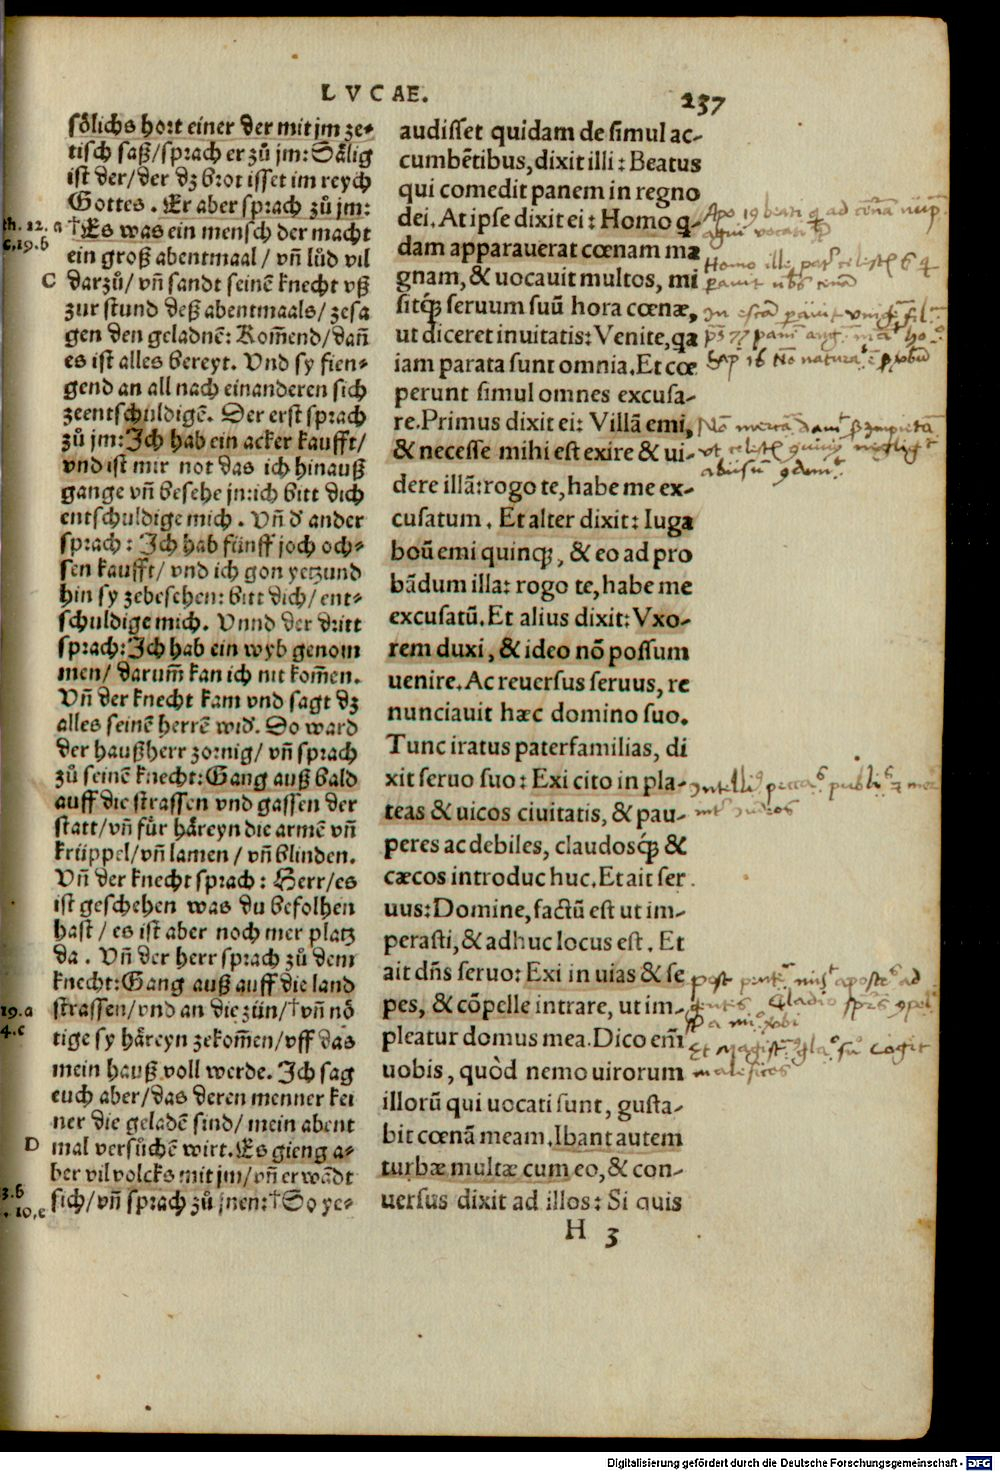 LVCAE.
237
sőlichs hort einer der mit jm ze⸗
tisch saß/sprach er zů jm: Sålig
ist der/der dz brot isset im reych
Gottes. Er aber sprach zů jm:
†Es was ein mensch der macht
ein groß abentmaal/ vn̄ lůd vil
darzů/ vn̄ sandt seinē knecht vß
zur stund deß abentmaals/ zesa
gen den geladnē: Kom̄end/ dan̄
es ist alles bereyt. Vnd sy fien⸗
gend an all nach einanderen sich
zeentschuldigē. Der erst sprach
zů jm: Ich hab ein acker kaufft/
vnd ist mir not das ich hinauß
gange vn̄ besehe jn: ich bitt dich
entschuldige mich. Vn̄ d' ander
sprach: Ich hab fünff joch och⸗
sen kaufft/ vnd ich gon yetzund
hin sy zebesehen: bitt dich/ ent⸗
schuldige mich. Vnnd der dritt
sprach: Ich hab ein wyb genom
men/ darum̄ kan ich nit kom̄en.
Vn̄ der knecht kam vnd sagt dz
alles seinē herrē wid'. So ward
der haußherr zornig/ vn̄ sprach
zů seinē knecht: Gang auß bald
auff die strassen vnd gassen der
statt/vn̄ für håreyn die armē vn̄
krüppel/vn̄ lamen/ vn̄ blinden.
Vn̄ der knecht sprach: Herr/es
ist geschehen was du befolhen
hast/ es ist aber noch mer platz
da. Vn̄ der herr sprach zů dem
knecht: Gang auß auff die land
strassen/vnd an die zün/†vn̄ nő
tige sy håreyn zekom̄en/vff das
mein hauß voll werde. Ich sag
euch aber/das deren menner kei
ner die geladē sind/ mein abent
mal versůchē wirt. Es gieng a⸗
ber vil volcks mit jm/vn̄ erwādt
sich/vn̄ sprach zů jnen:†So ye⸗
th. 22. a
c.19.b
C
19.a
4.c
D
3.b
10,e
audisset quidam de simul ac-
cumbētibus, dixit illi: Beatus
qui comedit panem in regno
dei. At ipse dixit ei: Homo q-
dam apparauerat cœnam ma
gnam, & uocauit multos, mi
sitq́ꝫ seruum suū hora cœnæ,
ut diceret inuitatis: Venite, qa
iam parata sunt omnia. Et cœ
perunt simul omnes excusa-
re. Primus dixit ei: Villā emi,
& necesse mihi est exire & ui-
dere illā: rogo te, habe me ex-
cusatum. Et alter dixit: Iuga
boū emi quinqꝫ, & eo ad pro
bādum illa: rogo te, habe me
excusatū. Et alius dixit: Vxo-
rem duxi, & ideo nō possum
uenire. Ac reuersus seruus, re
nunciauit hæc domino suo.
Tunc iratus paterfamilias, di
xit seruo suo: Exi cito in pla-
teas & uicos ciuitatis, & pau-
peres ac debiles, claudosq́ꝫ &
cæcos introduc huc. Et ait ser
uus: Domine, factū est ut im-
perasti, & adhuc locus est. Et
ait dn̄s seruo: Exi in uias & se
pes, & cōpelle intrare, ut im-
pleatur domus mea. Dico em̄
uobis, quòd nemo uirorum
illorū qui uocati sunt, gusta-
bit cœnā meam. Ibant autem
turbæ multæ cum eo, & con-
uersus dixit ad illos: Si quis
H 3
Digitalisierung gefördert durch die Deutsche Forschungsgemeinschaft - DFG